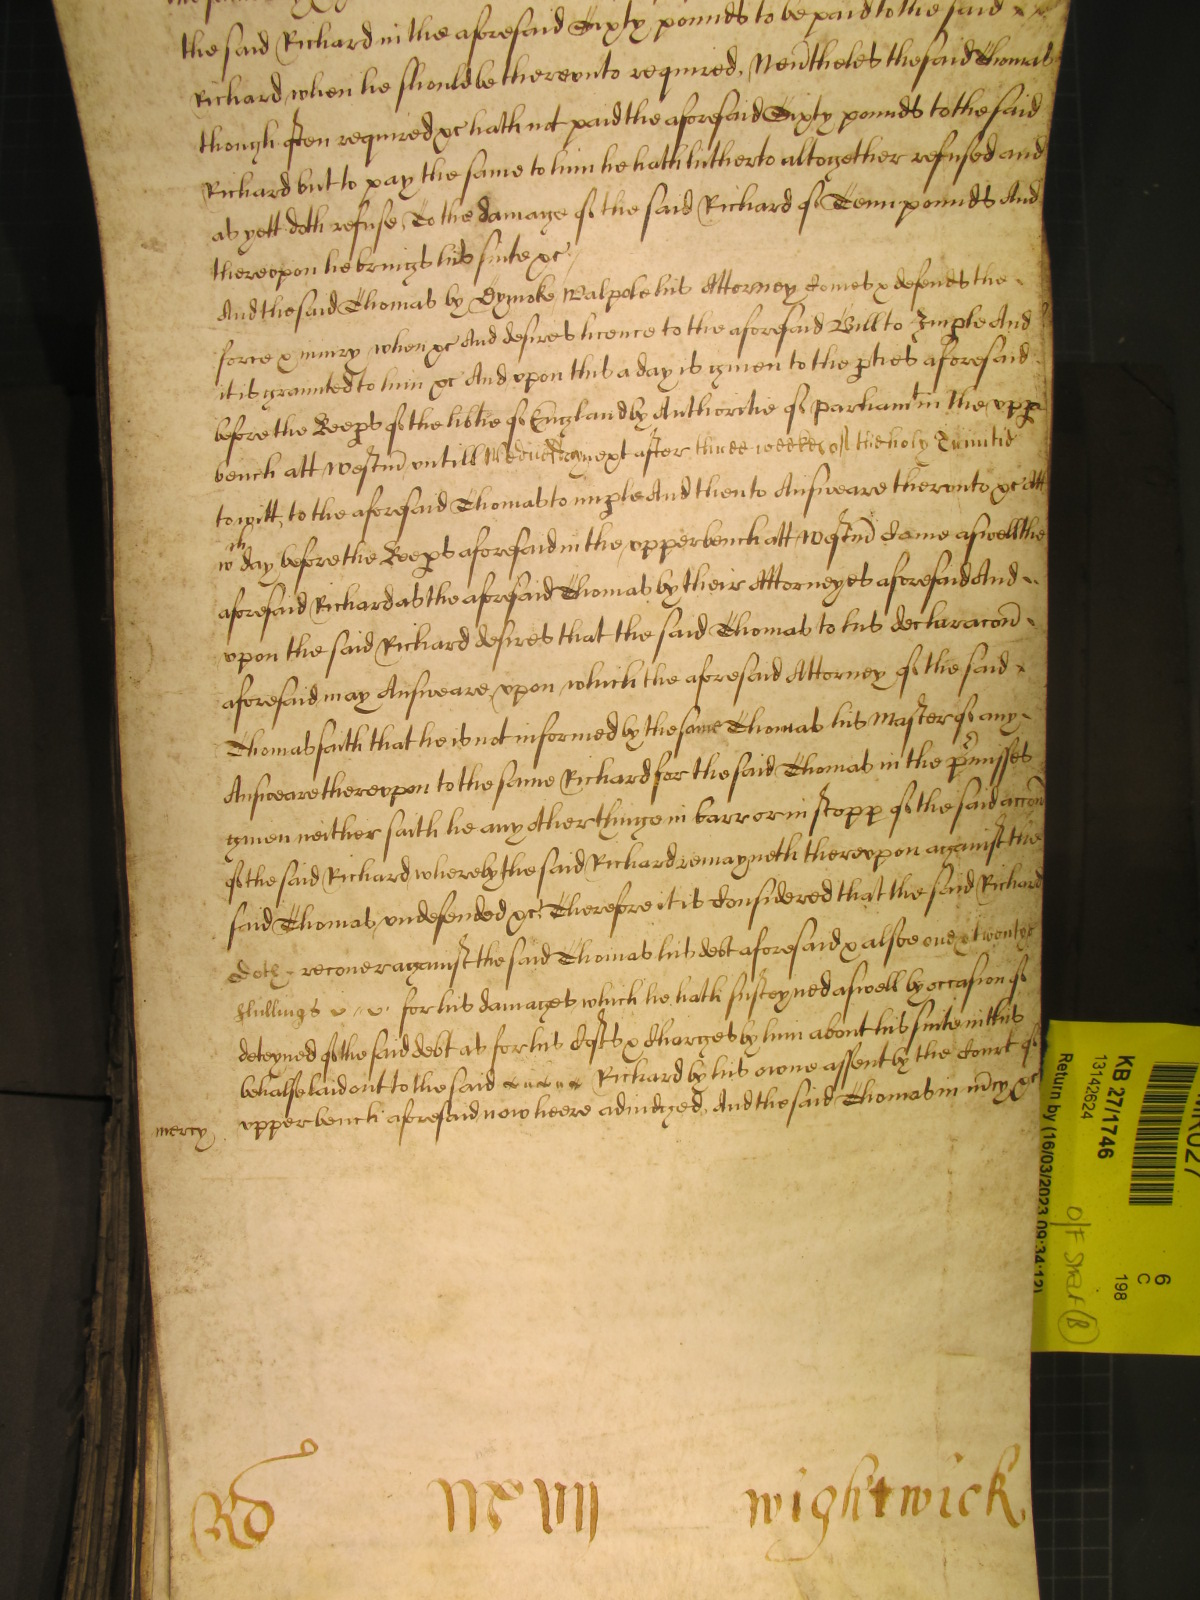 the said Richard in the aforesaid Sixty pounds to be paid to the said
Richard when he should be therevnto required, Nev'theles the said Thomas
though often required &c hath not paid the aforesaid Sixty pounds to the said
Richard but to pay the same to him he hath hitherto altogether refused and
as yett doth refuse, To the damage of the said Richard of Tenn pounds And
therevpon he brings his suite &c
And the said Thomas by Dymoke Walpole his Attorney Comes & defends the
force & iniury when &c And desires licence to the aforesaid Bill to Imple And
it is graunted to him &c And vpon this a day is giuen to the p'ties aforesaid
before the Keep's of the lib'tie of England by Authoritie of Parliam't in the vpp
bench att Westm' vntill Wednesday next after three weekes of the holy Trinitie
to witt, to the aforesaid Thomas to imple And then to Answeare therevnto &c Att
w'ch day before the Keep's aforesaid in the vpper bench att Westm' Come aswell the
aforesaid Richard as the aforesaid Thomas by their Attorneyes aforesaid And
vpon the said Richard desires that the said Thomas to his declaracon'
aforesaid may Answeare, vpon which the aforesaid Attorney of the said
Thomas saith that he is not informed by the same Thomas his Master of any
Answeare therevpon to the same Richard for the said Thomas in the p'misses
giuen neither saith he any other thinge in barr or in stopp of the said accon'
of the said Richard, whereby the said Richard remayneth therevpon against the
said Thomas, vndefended &c Therefore it is Considered that the said Richard
Doth recouer against the said Thomas his debt aforesaid & alsoe one & twentye
shillings for his damages which he hath susteyned aswell by occasion of
deteyned of the said debt as for his Costs & Charges by him about his suite in this
behalfe laid out to the said Richard by his owne assent by the Court of
vpper bench aforesaid now heere adiudged, And the said Thomas in m'cy &c
mercy
Rd MXVII wightwick
KB 27/1746
13142624
Return by (16/03/2023 09:34:12)
6
C
198